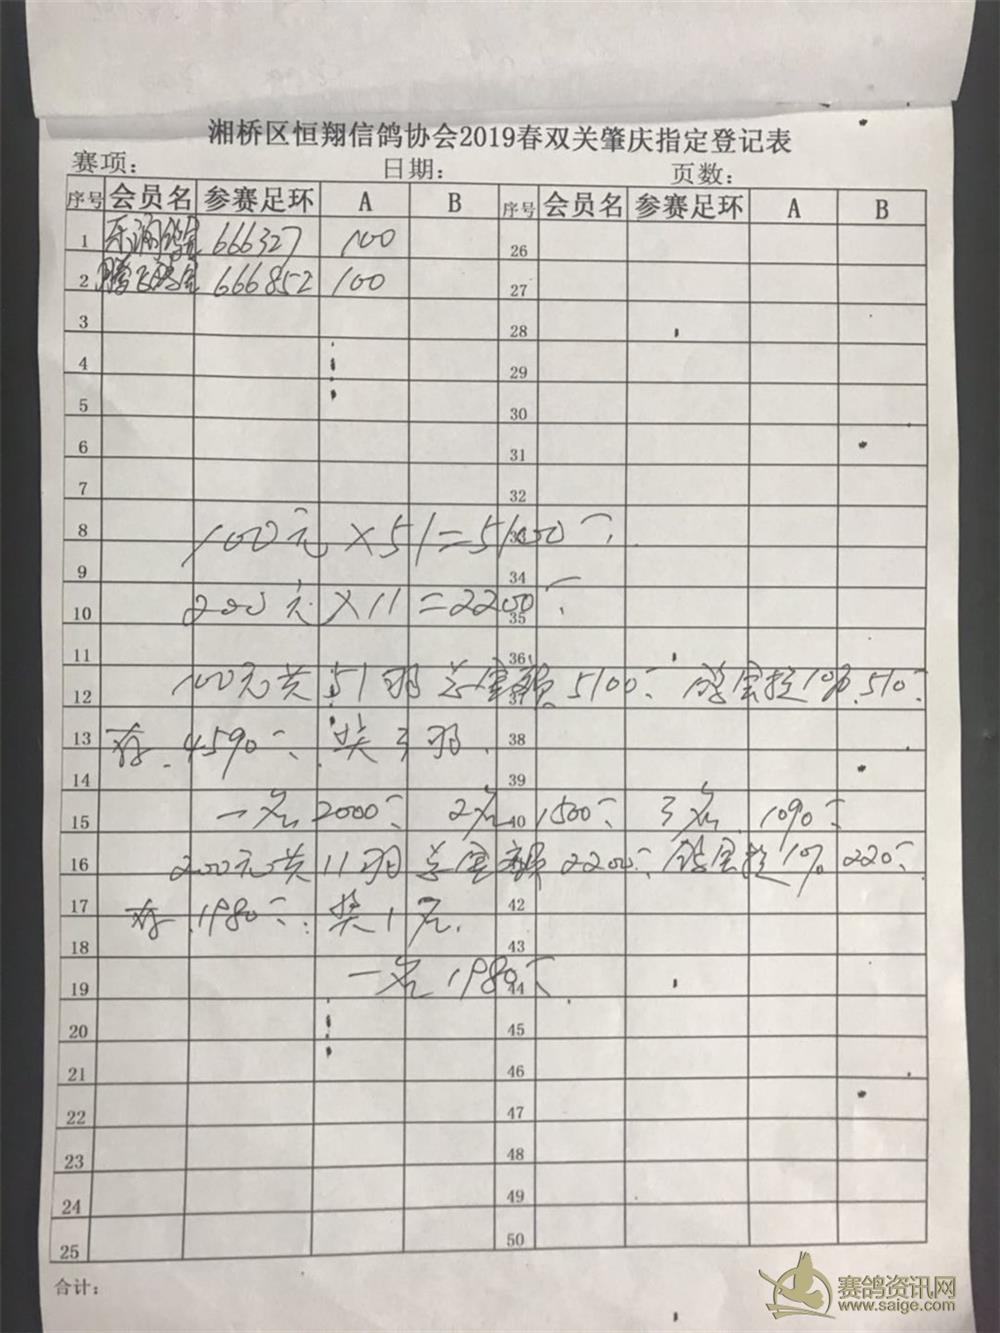 湘桥区恒翔信鸽协会2019春双关肇庆指定登记表
赛项： 日期： 页数：
序号 会员名 参赛足环 A B 序号 会员名 参赛足环 A B
1 666327 100 26
2 腾飞鸽舍 666852 100 27
3 28
4 29
5 30
6 31
7 32
8 100元×51=5100 33
9 34
10 200元×11=2200 35
11 36
12 100元共51羽 总金额5100 提10% 510 37
13 存 4590 奖3羽 38
14 39
15 一名2000 2名1500 3名 1090 40
16 200元共11羽 总金额2200 提10% 220
17 存 1980 奖1名 42
18 43
19 一名 1980 44
20 45
21 46
22 47
23 48
24 49
25 50
合计：
赛鸽资讯网
www.saige.com